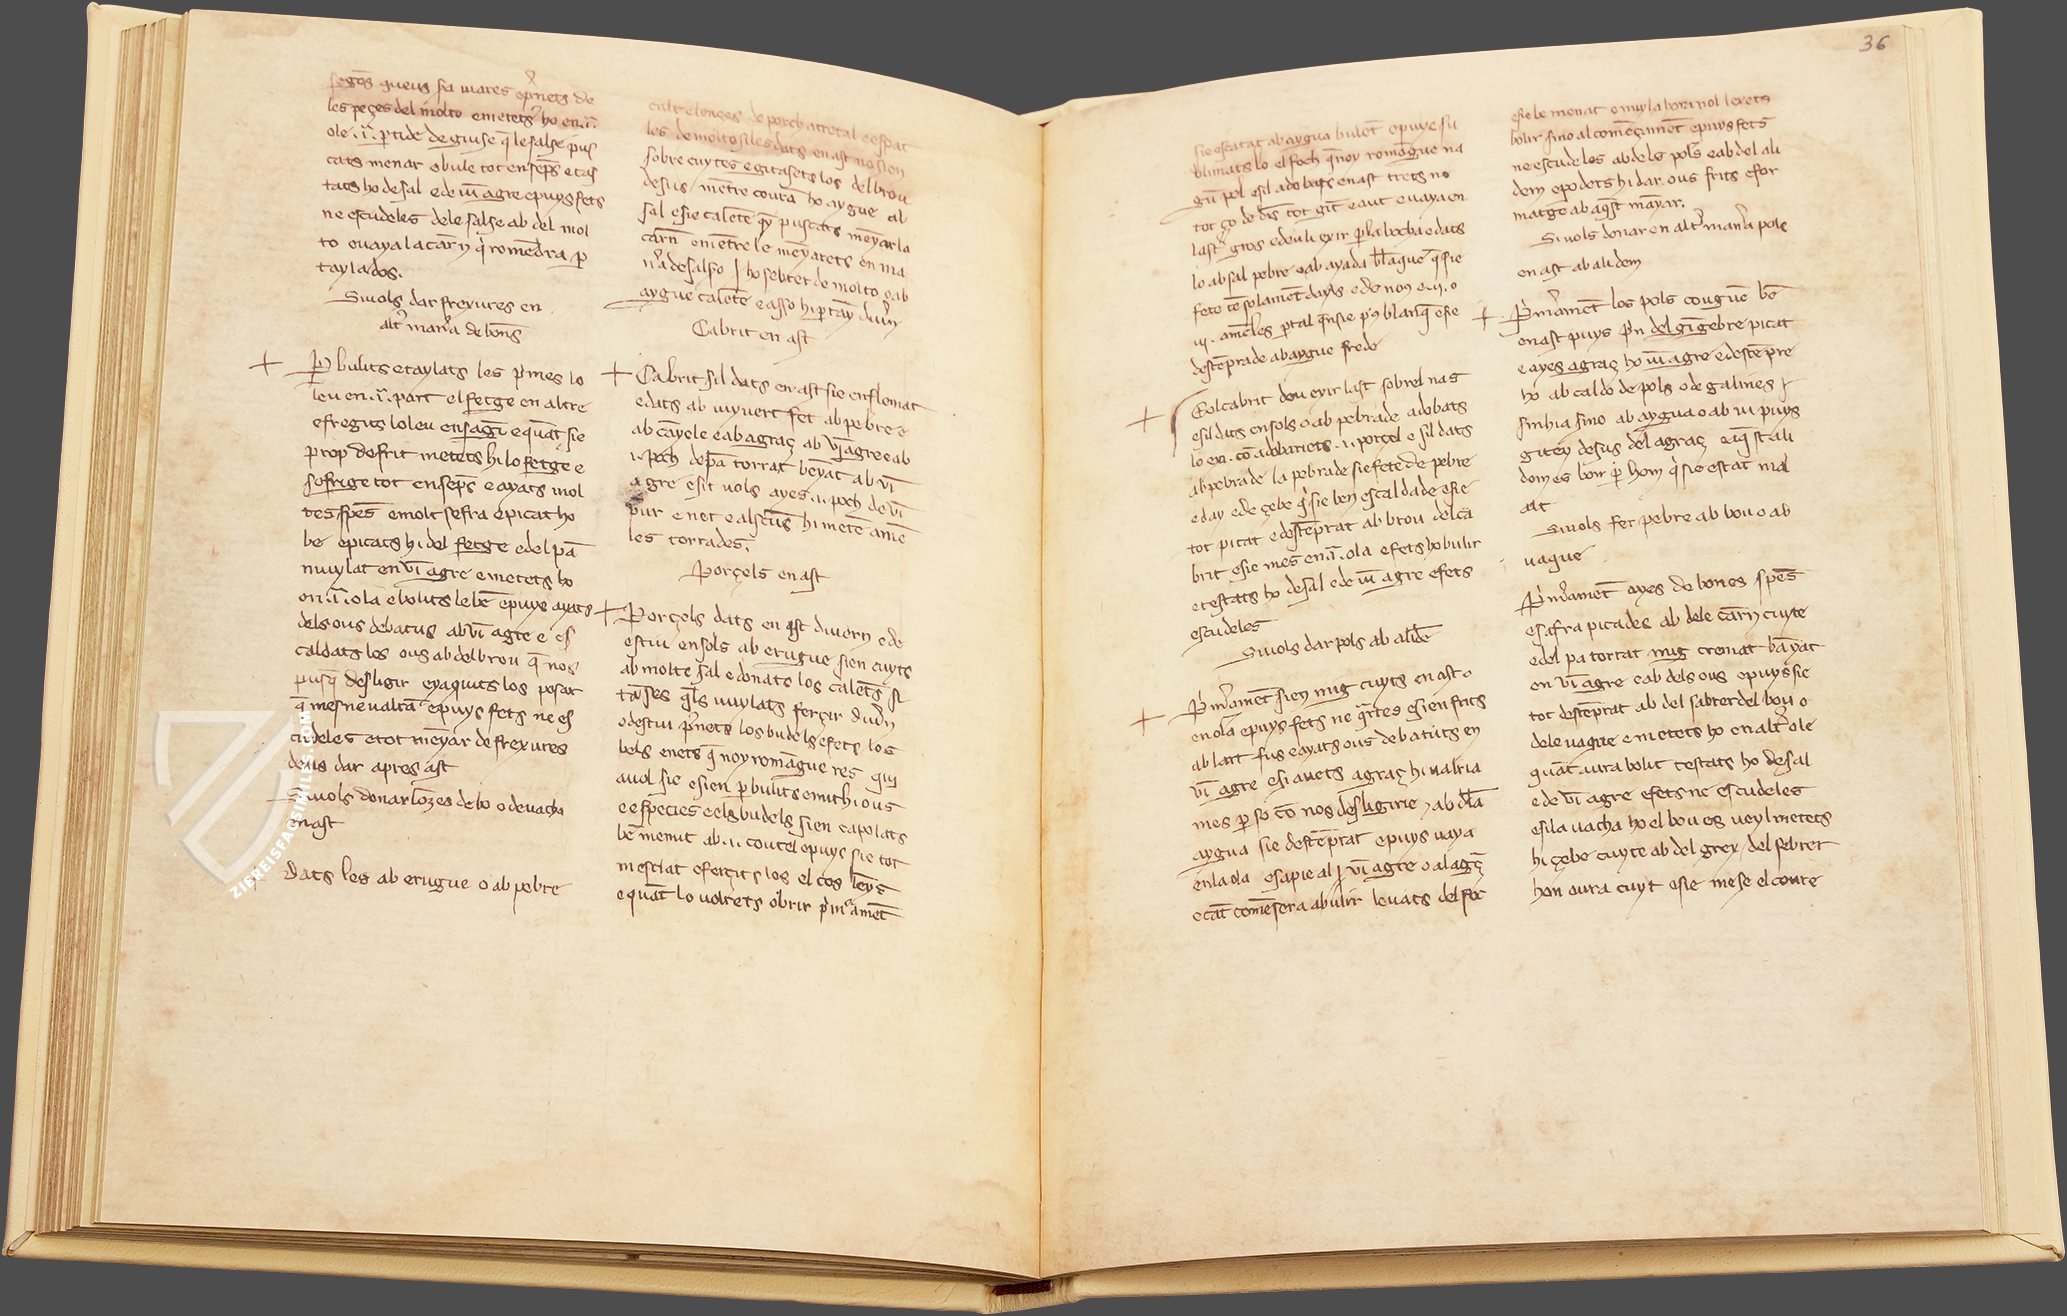 les peçes del molto e metets ho en .i.
ole .i. partide de giuse q̄ le salse pus
cats menar e bule tot ensēps e tas
tats ho de sal e de vī agre e puys fets
ne escudeles de le salse ab del mol
to e vaya la carn q̇ romēdra p̄
taylados.
Si uols dar frexures en
altr̄ manr̄a de bōns
P̄ bulits e taylats les p̄mes lo
leu en .i. part el fetge en altre
e fregits lo leu en sagī e quāt sie
prop de frit metets hi lo fetge e
sofrige tot ensēps e ayats mol
tes spēs e molt sefra e picat ho
be e picats hi del fetge e del pā
muylat en vī agre e metets ho
en .i. ola e bolits le bē e puys ayats
dels ous debatus ab vī agre e es
caldats los ous ab del brou q̄ nos
pusq̄ desligir e yaquits los posar
q̄ mes ne valrā e puys fets ne es
cudeles e tot mēyar de frexures
deus dar apres ast
Si uols donar lōzes de bo o de vacha
en ast
Dats les ab erugue o ab pebre
calt e lonçes de porch atretal e espat
les de molto si les dats en ast no sien
sobre cuytes e gitasets los del brou
desus mētre courā ho aygue ab
sal e sie calēte
carn e mētre le mēyarets en ma
nr̄a de salso ho sebrer de molto e ab
aygue calēte e asso hi ptāy diuērn
Cabrit en ast
Cabrit sil dats en ast sie enflemat
e dats ab iuyvert fet ab pebre e
ab cāyele e ab agraç ab vī agre e ab
.i. poch de pā torrat bēyat ab vī
agre e sit uols ayes .i. poch de vī
pur e net e alscūs hi metē amē
les torrades.
Porçels en ast
Porçels dats en ast diuern e de
estiu en sols ab erugue sien cuyts
ab molte sal e donats los calēts si
trāses q̄ls vuylats ferçir diuērn
e destiu p̄nets los budels e fets los
bels e nets q̄ noy romāgue res qui
auol sie e sien p̄bulits e mith i ous
e especies e els budels sien capolats
be menut ab .i. coutel e puys sie tot
mesclat e ferçits los el cos
e quāt lo volrets obrir p̄m̄amēt
36
sie escatat ab aygua bulēt e puys su
blimats lo el foch q̄ noy romāgue na
gū pel e sil adobats en ast trets no
tot ço de dīs tot git e aut e vaya en
last gros e deuli exir p̄ la bocha e dats
lo ab sal pebre e ab ayada blāque q̄ sie
feto tē solamēt dayls e de nous e .ij. o
.iij. amēles p̄tal q̄n sie pus blanq̄ e sie
destēprade ab aygue frede
El cabrit deu exir last sobrel nas
e sil dats en sols o ab pebrade adobats
lo en cō adobariets .i. porçel e sil dats
ab pebrade la pebrade sie fete de pebre
e day e de çebe q̇ sie ben escaldade e sie
tot picat e destēprat ab brou del ca
brit e sie mes en .i. ola e fets ho bulir
e testats ho de sal e de vī agre e fets
escudeles
Si uols dar pols ab alidē
P̄m̄amēt sien mig cuyts en ast o
en ola e puys fets ne q̄rtes e sien frits
ab lart fus e ayats ous debatuts en
vī agre e si auets agraç hi valria
mes p̄ so cō nos desligirie e ab dla
aygua sie destēprat e puys vaya
en la ola e sapie al vī agre o al agç
e cāt comēsera a bulir levats del foc
e sie be menat e
bolir sino al comēçamēt e puys fets
ne escudeles ab dels pols e ab del ali
dem e podets hi dar ous frits e for
matge ab aqst māyar.
Si uols donar en altr̄ manr̄a pols
en ast ab alidem
P̄m̄amēt los pols cougue bē
en ast puys p̄n del gīgebre picat
e ayes agraç ho vī agre e destēpre
ho ab caldo de pols o de galines
sinbia sino ab aygua o ab vi puys
gitey desus del agraç e aq̄st ali
dom es bon p̄ hom q̇ sie estat mal
alt
Si uols fer pebre ab bou o ab
vaque
P̄m̄amēt ayes de bones spēs
e safra picades ab dele carn cuyte
e del pa torrat mig cremat bāyat
en vī agre e ab dels ous e puys sie
tot destēprat ab del sabrer del bou o
dele vaque e metets ho en altr̄ ole
quāt aura bolit testats ho de sal
e de vī agre e fets ne escudeles
e si la vacha ho el bou es veyl metets
hi çebe cuyte ab del grex del sebrer
hon aura cuyt e sie mese el coure
ZIEREISFACSIMILES.COM